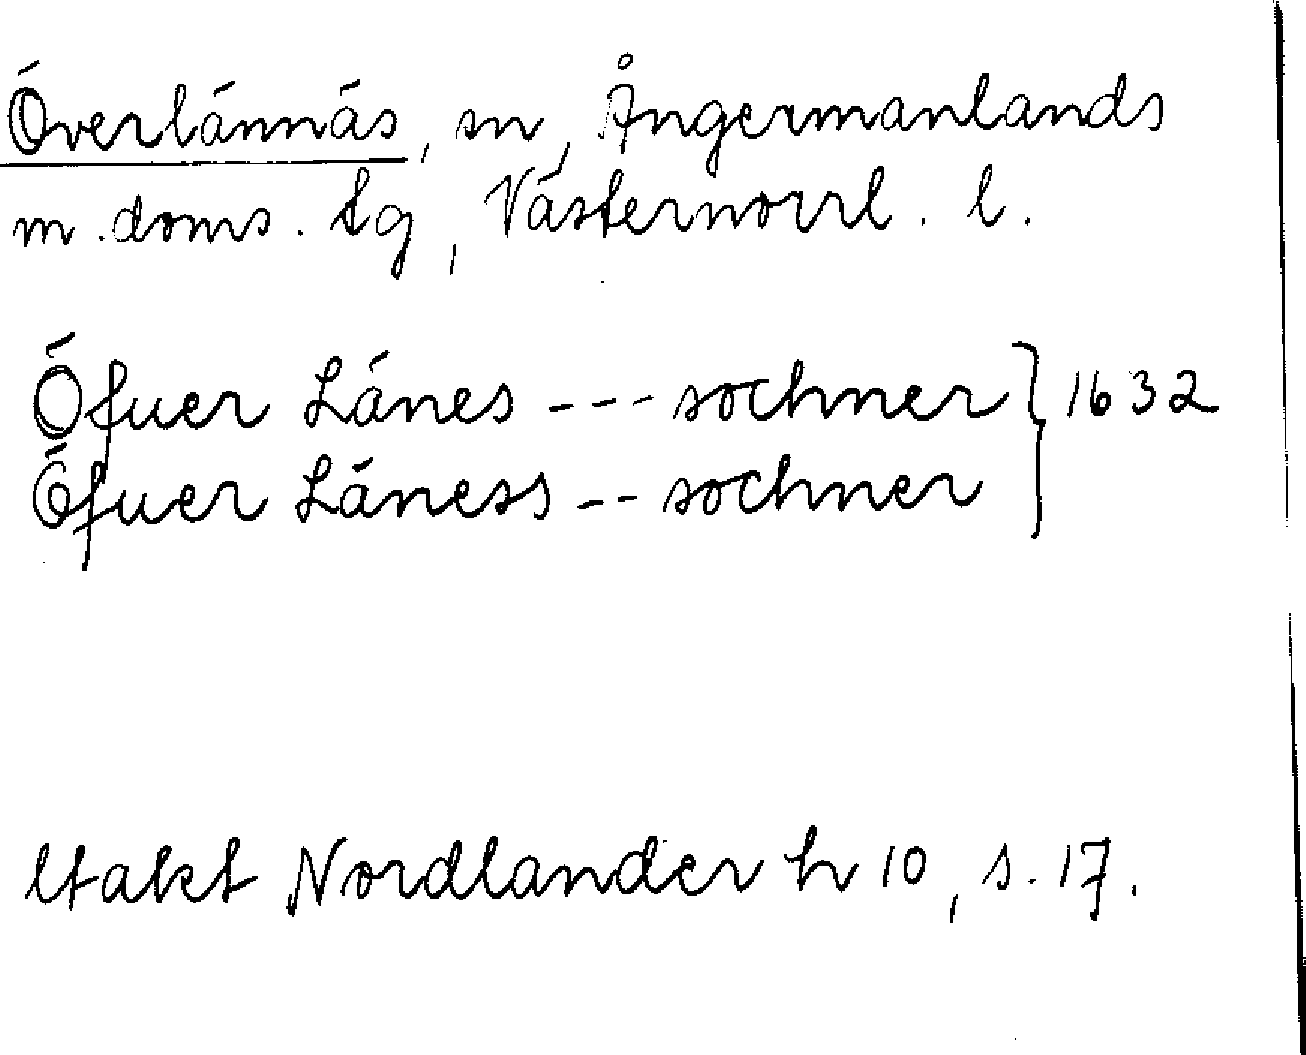 Överlännäs, sn, Ångermanlands
m. doms. tg, Västernorrl. l.
Öfuer Länes --- sochner } 1632
Öfuer Läness -- sochner
Utakt Nordlander h 10, s. 17.